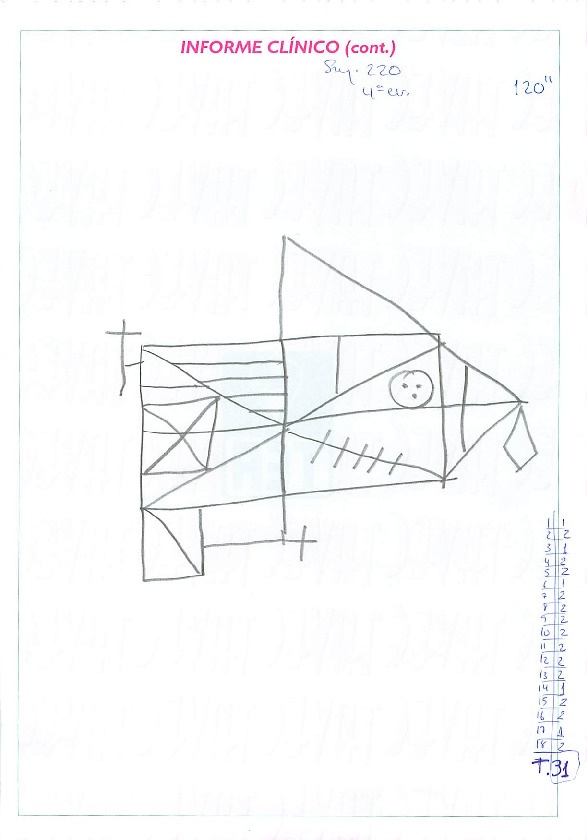 INFORME CLÍNICO (cont.)
Suj. 220
4ª ev.
120"
1 1
2 2
3 1
4 2
5 2
6 1
7 2
8 2
9 2
10 2
11 2
12 2
13 2
14 1
15 2
16 2
17 1
18 2
T. 31